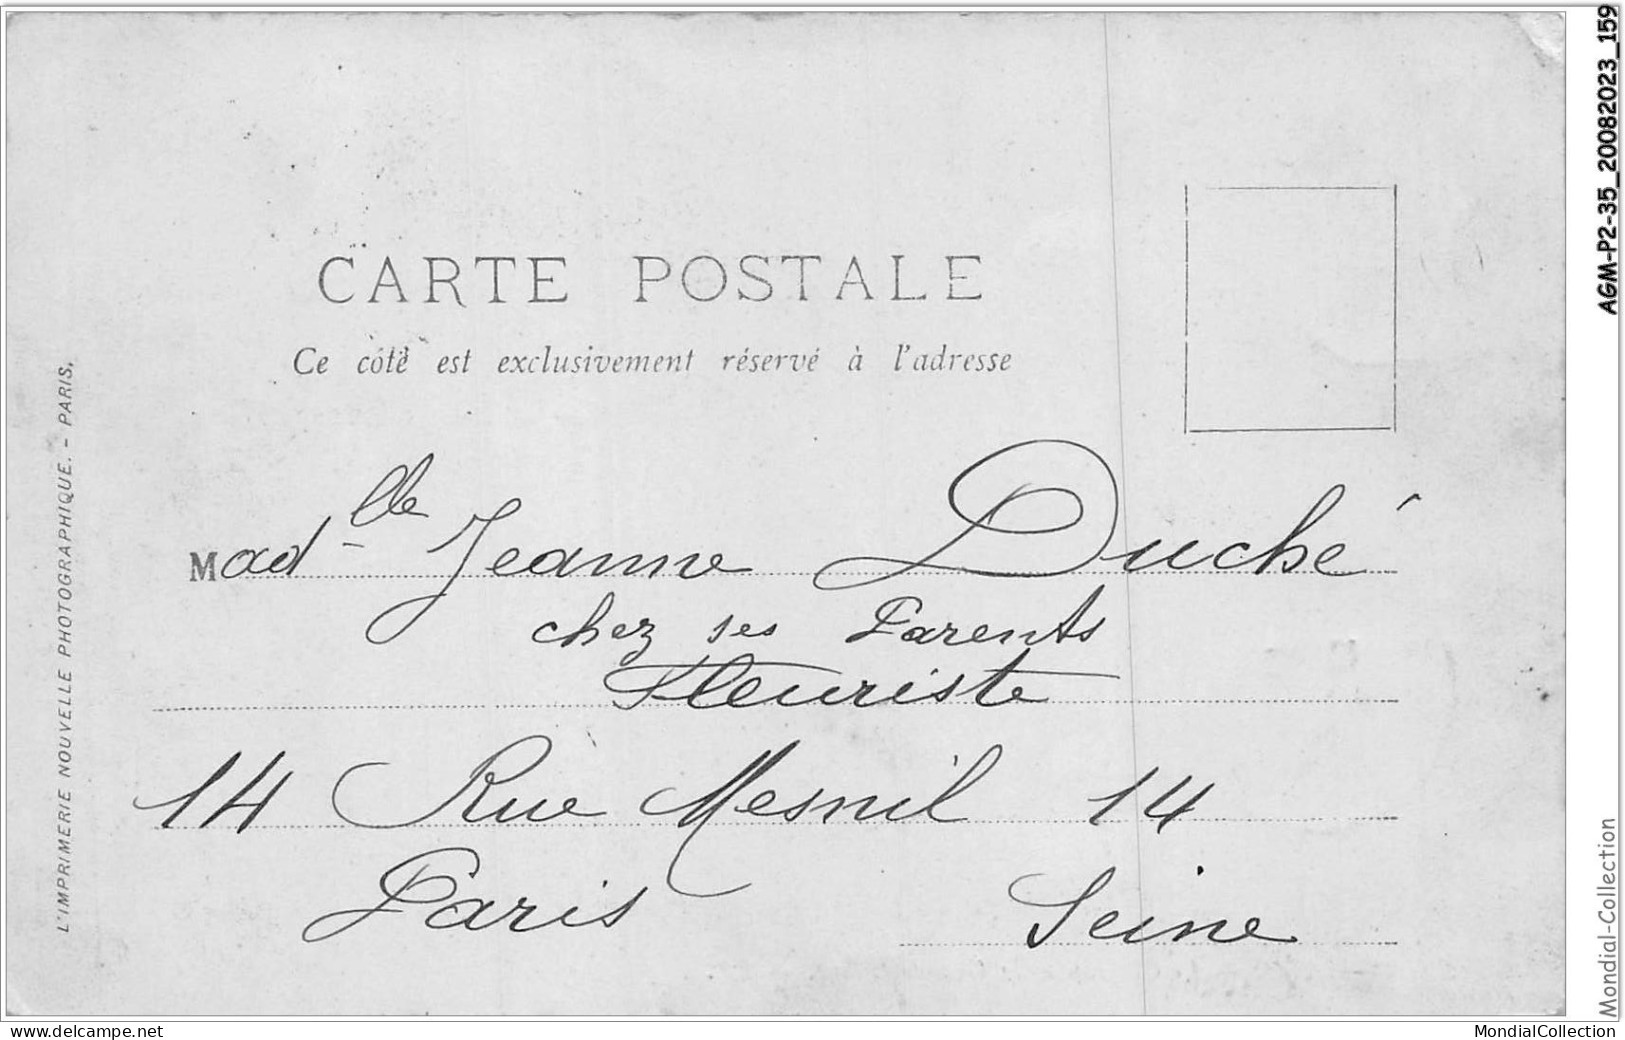 CARTE POSTALE
Ce côté est exclusivement réservé à l'adresse
Mad^lle Jeanne Duché
chez ses Parents
Fleuriste
14 Rue Mesnil 14
Paris Seine
L'IMPRIMERIE NOUVELLE PHOTOGRAPHIQUE. - PARIS.
AGM-P2-35_20082023_159
Mondial-Collection
www.delcampe.net
MondialCollection